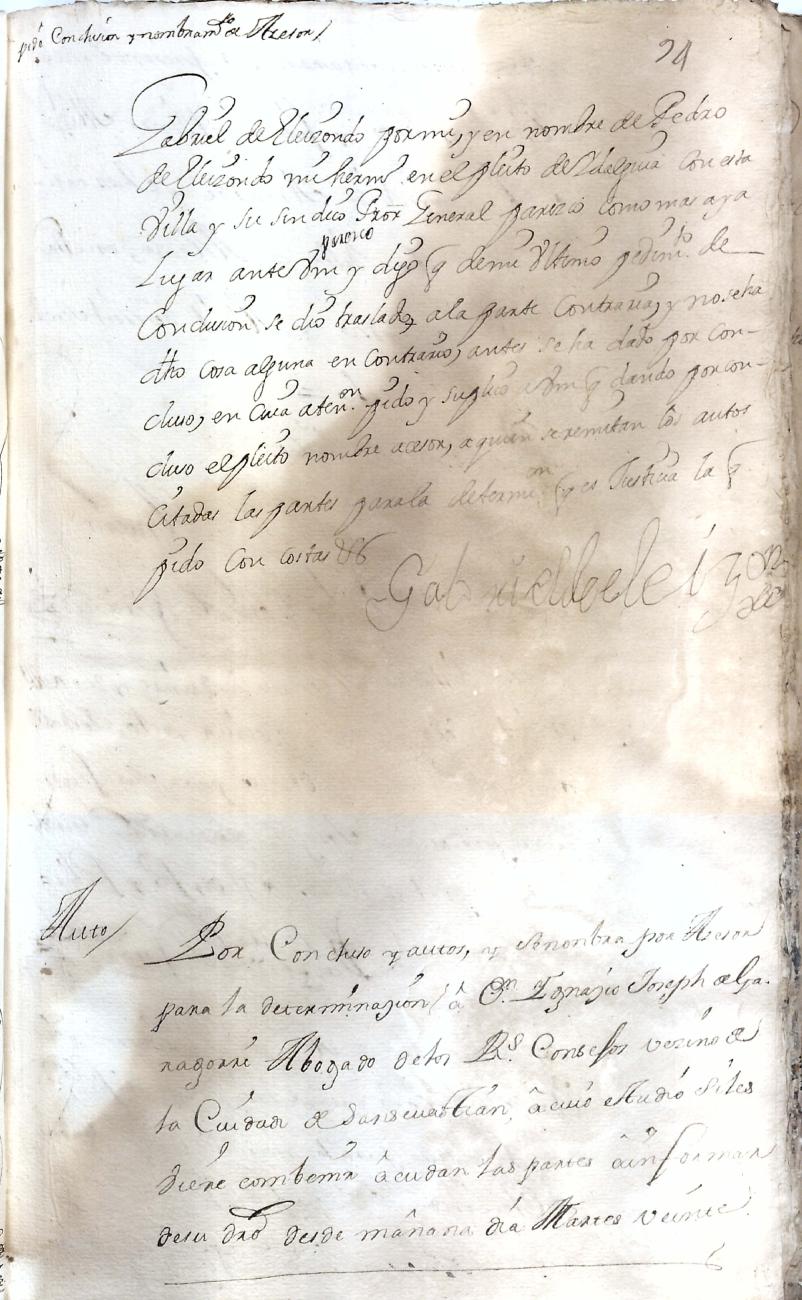 pide Conclusion y nombram.to de Asesor/
94
Gabriel de Eleizondo por mi, y en nombre de Pedro
de Eleizondo mi herm.o en el pleito de Ydalguia con esta
Villa y su sindico Pror General parezco como mas aya
parezco
lugar ante Vm y digo q de mi Ultimo pedim.to de
Conclusion se dio traslado, a la parte Contraria, y no se ha
dho cosa alguna en contrario, antes se ha dado por con-
cluso, en cuia aten.on pido y suplico a Vm q dando por con-
cluso el pleito nombre acesor, a quien se remitan los autos
Citadas las partes para la determi.on q es Justicia la q
pido con costas &a
Gabriel de eleizon
do
Auto/
Por Concluso y autos, y se nombra por Asesor
para la determinazion/ â Dn. Ygnazio Joseph de Ga-
ragorri Abogado de los Rs. Consejos vezino de
la Ciudad de Sansevastian, â cuio estudio si les
biere combenir âcudan las partes â informar
de su dro desde mañana dia Martes veinte